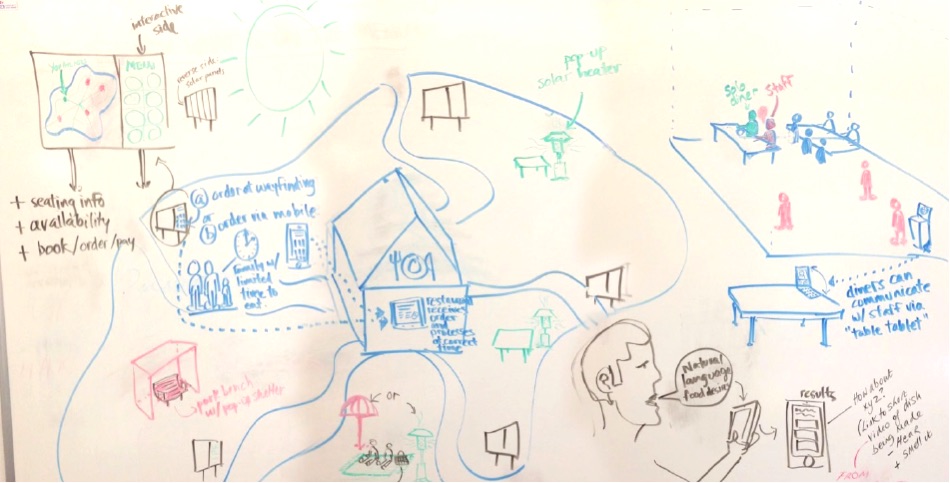 interactive
side
You are here
MENU
inverse side:
solar panel
+ seating info
+ availability
+ book/order/pay
ⓐ order at wayfinding
or
ⓑ order via mobile
family w/
limited
time to
eat
restaurant
receives
order
and
processes
at correct
time
pop-up
solar heater
park bench
w/ pop-up shelter
or
solo
diner
staff
diners can
communicate
w/ staff via
"table tablet"
Natural
language
food
results
How about
xyz?
(Link to short
video of dish
being made
- Hear
+ smell it
FROM